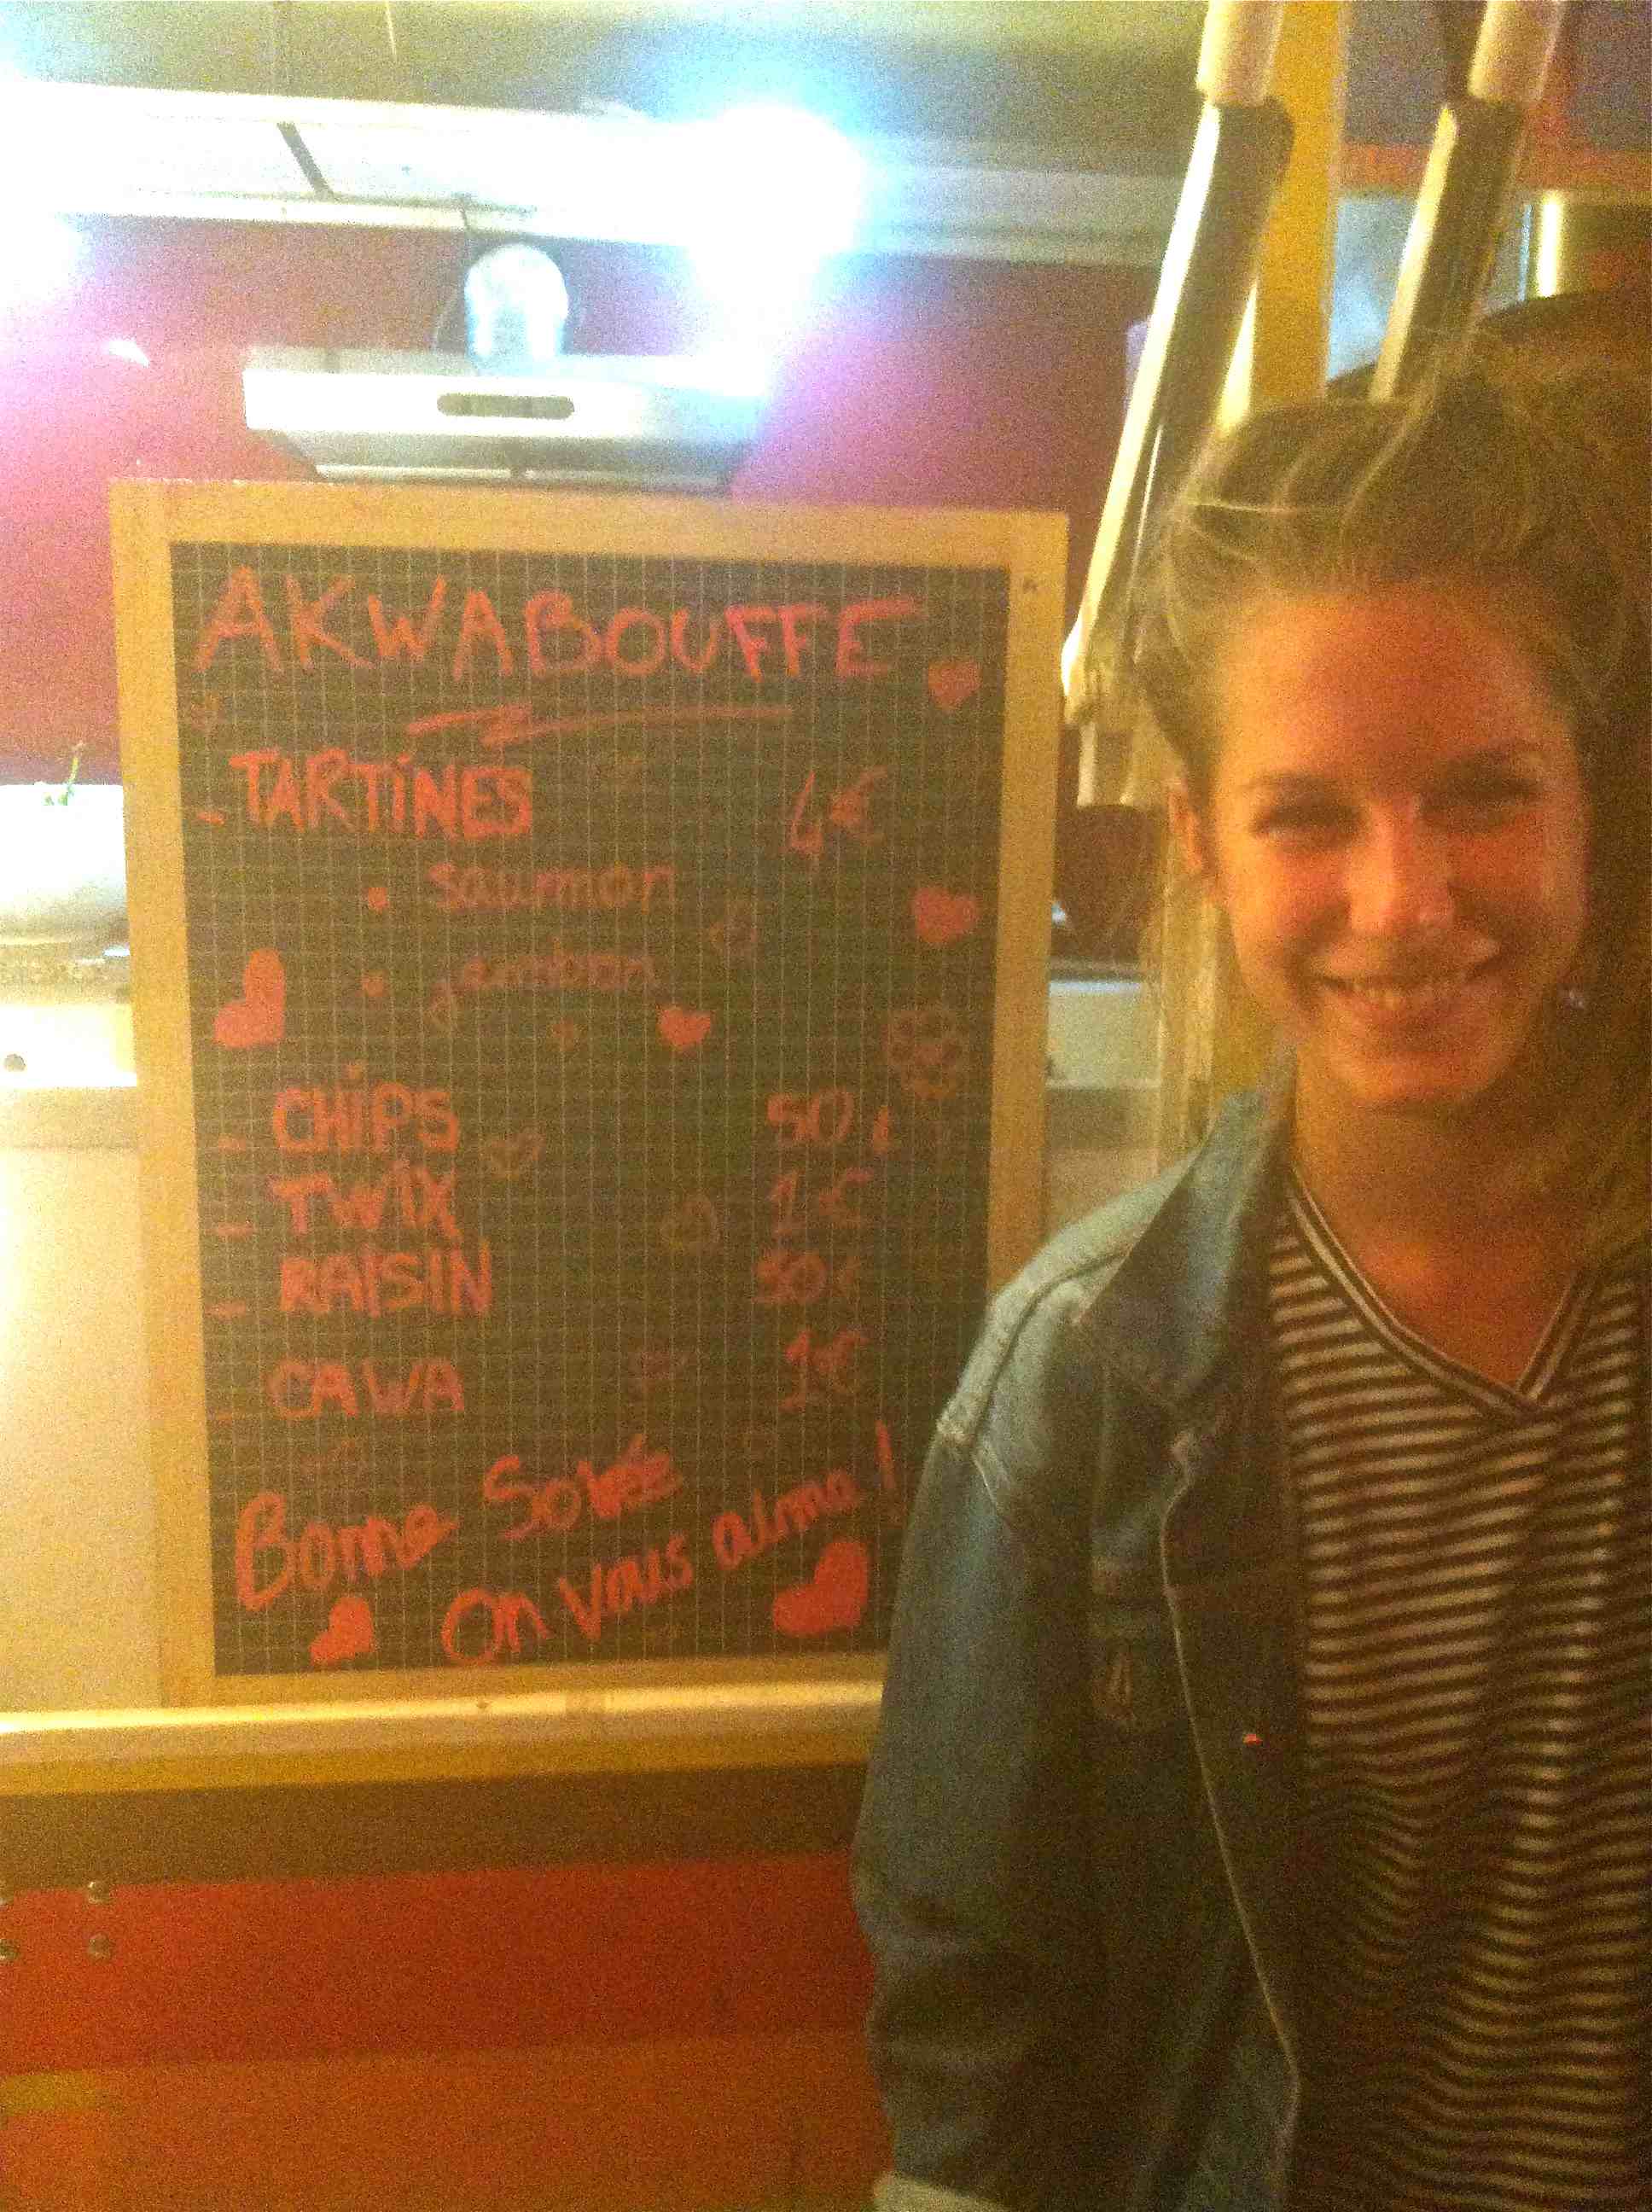 AKWABOUFFE
- TARTINES 4€
• saumon
• jambon
- CHIPS 50 c
- TWIX 1€
- RAISIN 50 c
- CAWA 1€
Bonne Soirée
On vous aime !